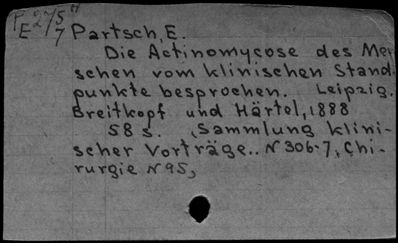 Partsch, E.
Die Actinomycose des Men-
schen vom klinischen Stand-
punkte besprochen. Leipzig.
Breitkopf und Härtel, 1888
58 s. (Sammlung klini-
scher Vorträge.. N 306-7, Chi-
rurgie N 95)